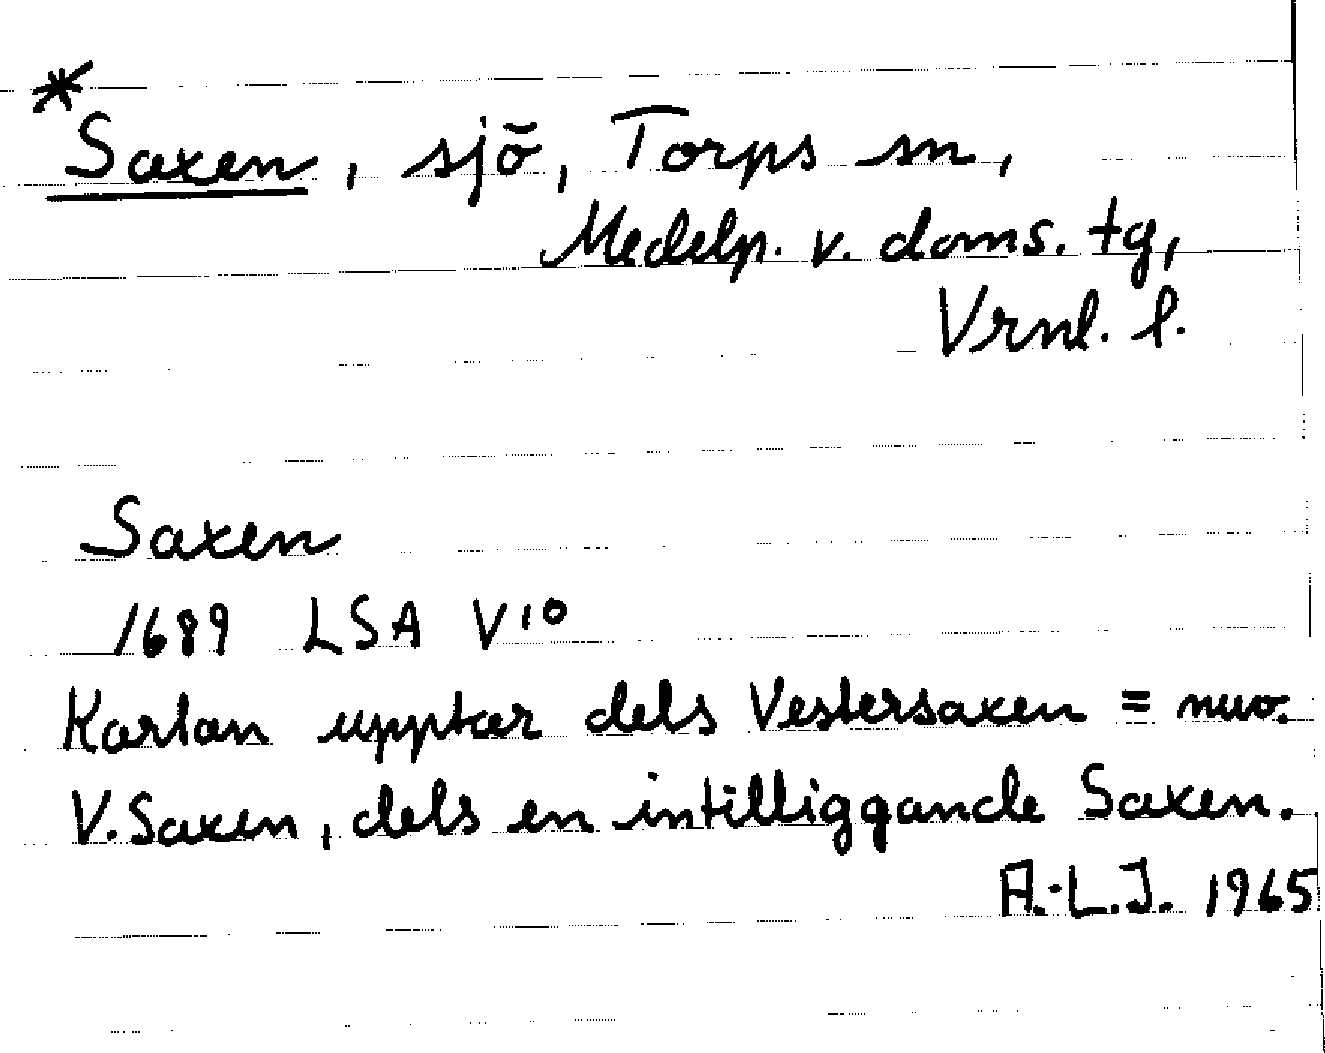 *
Saxen, sjö, Torps sn,
Medelp. v. doms. tg,
Vrnl. l.
Saxen
1689 LSA V10
Kartan upptar dels Vestersaxen = nuv.
V. Saxen, dels en intilliggande Saxen.
A.-L.J. 1965